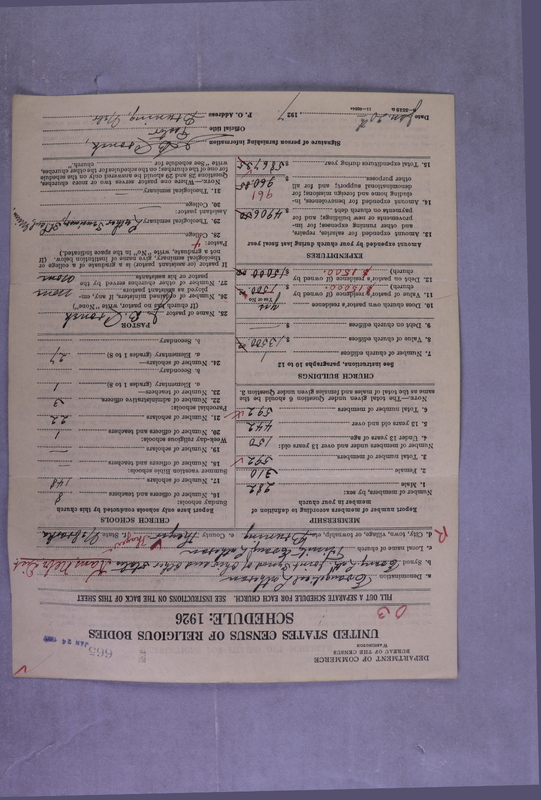 DEPARTMENT OF COMMERCE
BUREAU OF THE CENSUS
WASHINGTON
663
JAN 24
UNITED STATES CENSUS OF RELIGIOUS BODIES
SCHEDULE: 1926
FILL OUT A SEPARATE SCHEDULE FOR EACH CHURCH. SEE INSTRUCTIONS ON THE BACK OF THIS SHEET
a. Denomination Evangelical Lutheran
b. Synod Evang. Luth. Joint Synod of Ohio and other states
c. Local name of church
d. City, town, village, or township, etc. Bruning e. County Thayer f. State Nebraska
MEMBERSHIP
Report number of members according to definition of member in your church
Number of members, by sex:
1. Male 282
2. Female 310
3. Total number of members 592
Number of members under and over 13 years old:
4. Under 13 years of age 150
5. 13 years old and over 442
6. Total number of members 592
NOTE.—The total given under Question 6 should be the same as the total of males and females given under Question 3.
CHURCH BUILDINGS
See instructions, paragraphs 10 to 12
7. Number of church edifices 1
8. Value of church edifices $ 13500
9. Debt on church edifices $
10. Does church own pastor's residence
11. Value of pastor's residence (if owned by church) $
12. Debt on pastor's residence (if owned by church) $
EXPENDITURES
Amount expended by your church during last fiscal year
13. Amount expended for salaries, repairs, and other running expenses; for improvements or new buildings; and for payments on church debt $
14. Amount expended for benevolences, including home and foreign missions; for denominational support; and for all other purposes $
15. Total expenditures during year $
CHURCH SCHOOLS
Report here only schools conducted by this church
Sunday schools:
16. Number of officers and teachers 8
17. Number of scholars 148
Summer vacation Bible schools:
18. Number of officers and teachers —
19. Number of scholars —
Week-day religious schools:
20. Number of officers and teachers 1
21. Number of scholars 22
Parochial schools:
22. Number of administrative officers 3
23. Number of teachers—
a. Elementary (grades 1 to 8) 1
b. Secondary
24. Number of scholars—
a. Elementary (grades 1 to 8) 27
b. Secondary
PASTOR
25. Name of pastor
(If church has no pastor, write "None")
26. Number of ordained ministers, if any, employed as assistant pastors none
27. Number of other churches served by the pastor or his assistants none
If pastor (or assistant pastor) is a graduate of a college or theological seminary, give name of institution below. (If not a graduate, write "No" in the space indicated.)
Pastor:
28. College
29. Theological seminary
Assistant pastor:
30. College
31. Theological seminary
NOTE.—Where one pastor serves two or more churches, Questions 25 and 28 to 31 should be answered only on the schedule for one of the churches; on the schedules for the other churches, write "See schedule for church."
Signature of person furnishing information
Official title Pastor
P. O. Address Bruning, Nebr
Date Jan. 20th 1927